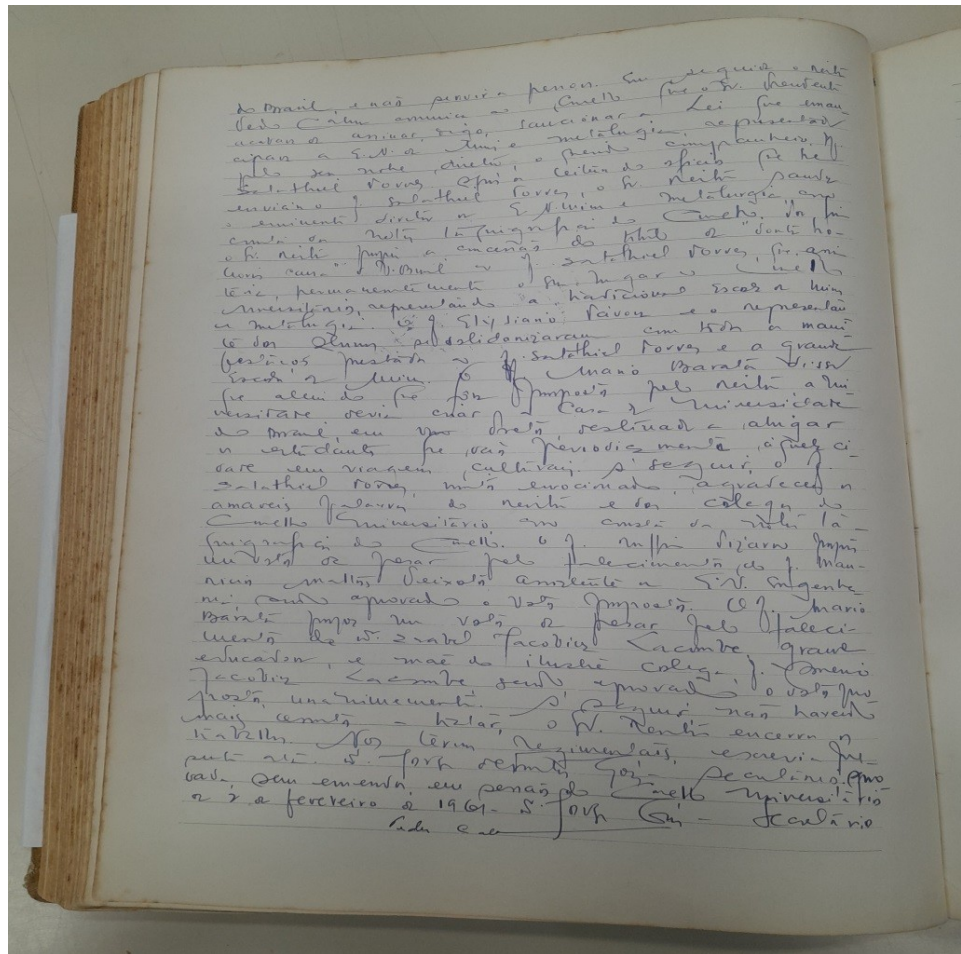 do Brasil, e não servir a pessoas. Em seguida o Reitor
Pedro Calmon comunica ao Conselho que o Sr. Presidente
acabou de assinar, digo, sancionar a Lei que eman
cipou a E.N. de Minas e Metalurgia, representada
pelo seu nobre diretor, o companheiro, Pf
Salathiel Torres
enviando o Pf Salathiel Torres, o Sr. Reitor saúda
o eminente diretor da E.N. Minas e Metalurgia,
consta da nota taquigráfica do Conselho.
o Sr. Reitor propõe a concessão do título de "doutor ho-
noris causa" da U. Brasil ao Pf. Salathiel Torres, que
permanentemente o seu lugar no Conselho
Universitário, representando a tradicional Escola de Minas
e Metalurgia. O Pf. Elysiario Távora e o representan
te dos alunos se solidarizaram com toda a mani
festações prestada ao Pf. Salathiel Torres e a grande
Escola de Minas. O Pf Mario Barata disse
que alem do que foi proposto pelo Reitor a Uni
versidade devia criar a Casa da Universidade
do Brasil, em Ouro Preto, destinada a abrigar
os estudantes que vão periodicamente àquela ci
dade em viagem cultural. A seguir, o Pf.
Salathiel Torres, muito emocionado, agradeceu as
amaveis palavras do Reitor e dos colegas do
Conselho Universitário, como consta da nota ta-
quigráfica do Conselho. O Pf.  propôs
um voto de pesar pelo falecimento do Pf. Mau-
ricio  Peixoto, assistente da E.N. Engenha
ria, sendo aprovado o voto proposto. O Pf. Mario
Barata propos um voto de pesar pelo faleci-
mento de D. Izabel Jacobina Lacombe, grande
educadora, e mãe do ilustre colega, Pf. Americo
Jacobina Lacombe sendo aprovado o voto pro
posto, unanimemente. A seguir não havendo
mais assunto a tratar, o Sr. Reitor encerra os
trabalhos. Nos termos regimentais, escrevi a pre-
sente ata. Secretário. Apro
vada, sem emenda, em sessão do Conselho Universitário
de 2 de fevereiro de 1961. Secretário